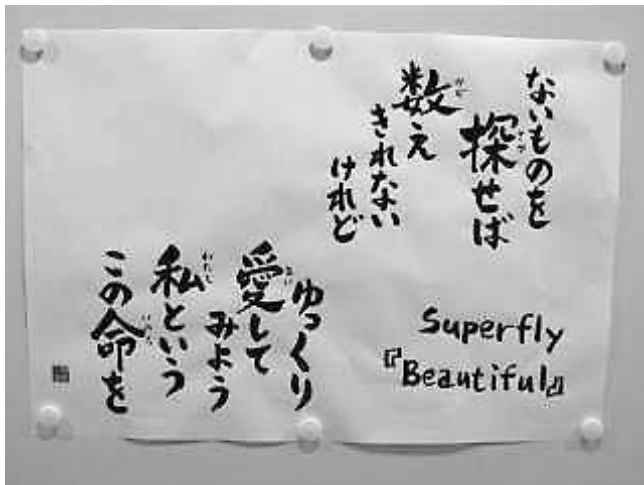 ないものを
探せば
数え
きれない
けれど
ゆっくり
愛して
みよう
私という
この命を
Superfly
『Beautiful』